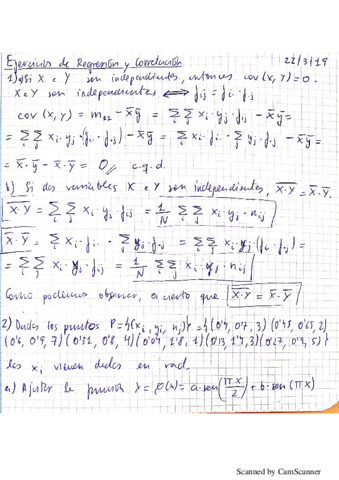 Ejercicios de Regresión y Correlación 22/3/19
1) a) Si X e Y son independientes, entonces cov(x,y)=0.
X e Y son independientes ⟺ fij = fi· f·j
cov(x,y) = m11 - x̄ȳ = Σi Σj xi·yj·fij - x̄ȳ =
= Σi Σj xi·yj·(fi·f·j) - x̄ȳ = Σi xi·fi· Σj yj·f·j - x̄ȳ =
= x̄·ȳ - x̄·ȳ = 0 c.q.d.
b) Si dos variables X e Y son independientes, \overline{X·Y} = X̄·Ȳ.
\overline{X·Y} = Σi Σj xi·yj·fij = 1/N Σi Σj xi·yj·nij
X̄·Ȳ = Σi xi·fi· Σj yj·f·j = Σi Σj xi·yj(fi·f·j) =
= Σi Σj xi·yj·fij = 1/N Σi Σj xi·yj·nij
Como podemos observar, es cierto que \overline{X·Y} = X̄·Ȳ
2) Dados los puntos P={(xi, yi, ni)}={(0'4, 0'7, 3) (0'45, 0'65, 2)
los xi vienen dados en rad.
a) Ajustar la función y = φ(x) = a·sen(πx/2) + b·sen(πx)
Scanned by CamScanner